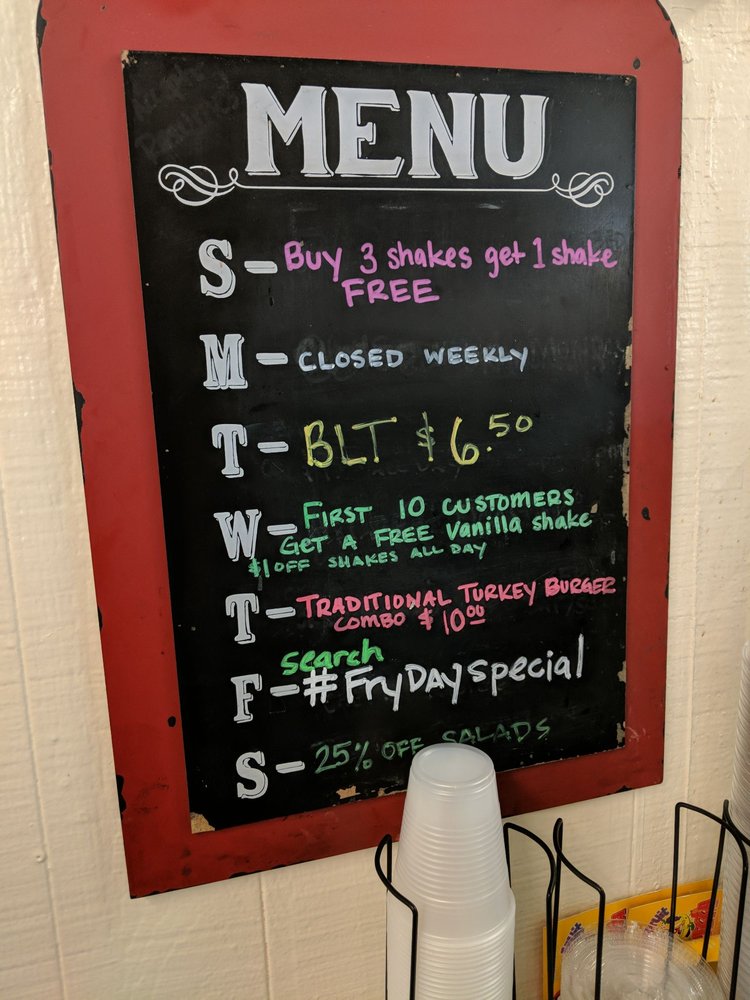 MENU
S - Buy 3 shakes get 1 shake
FREE
M - CLOSED WEEKLY
T - BLT $6.50
W - FIRST 10 CUSTOMERS
GET A FREE Vanilla shake
$1 OFF SHAKES ALL DAY
T - TRADITIONAL TURKEY BURGER
COMBO $10.00
search
F - #FryDayspecial
S - 25% OFF SALADS